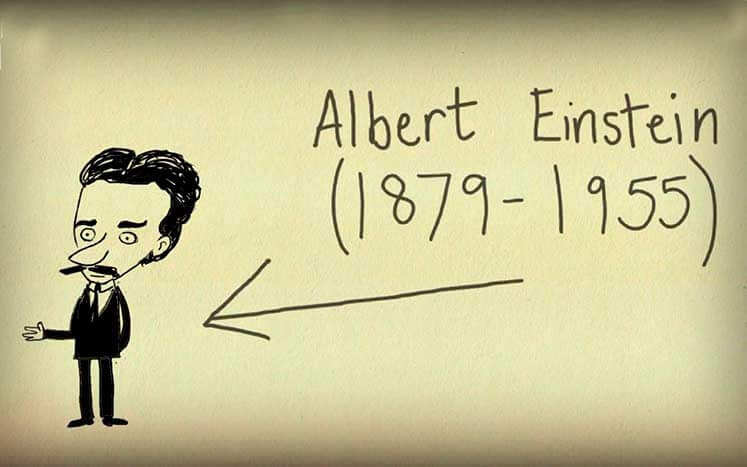 Albert Einstein
(1879-1955)